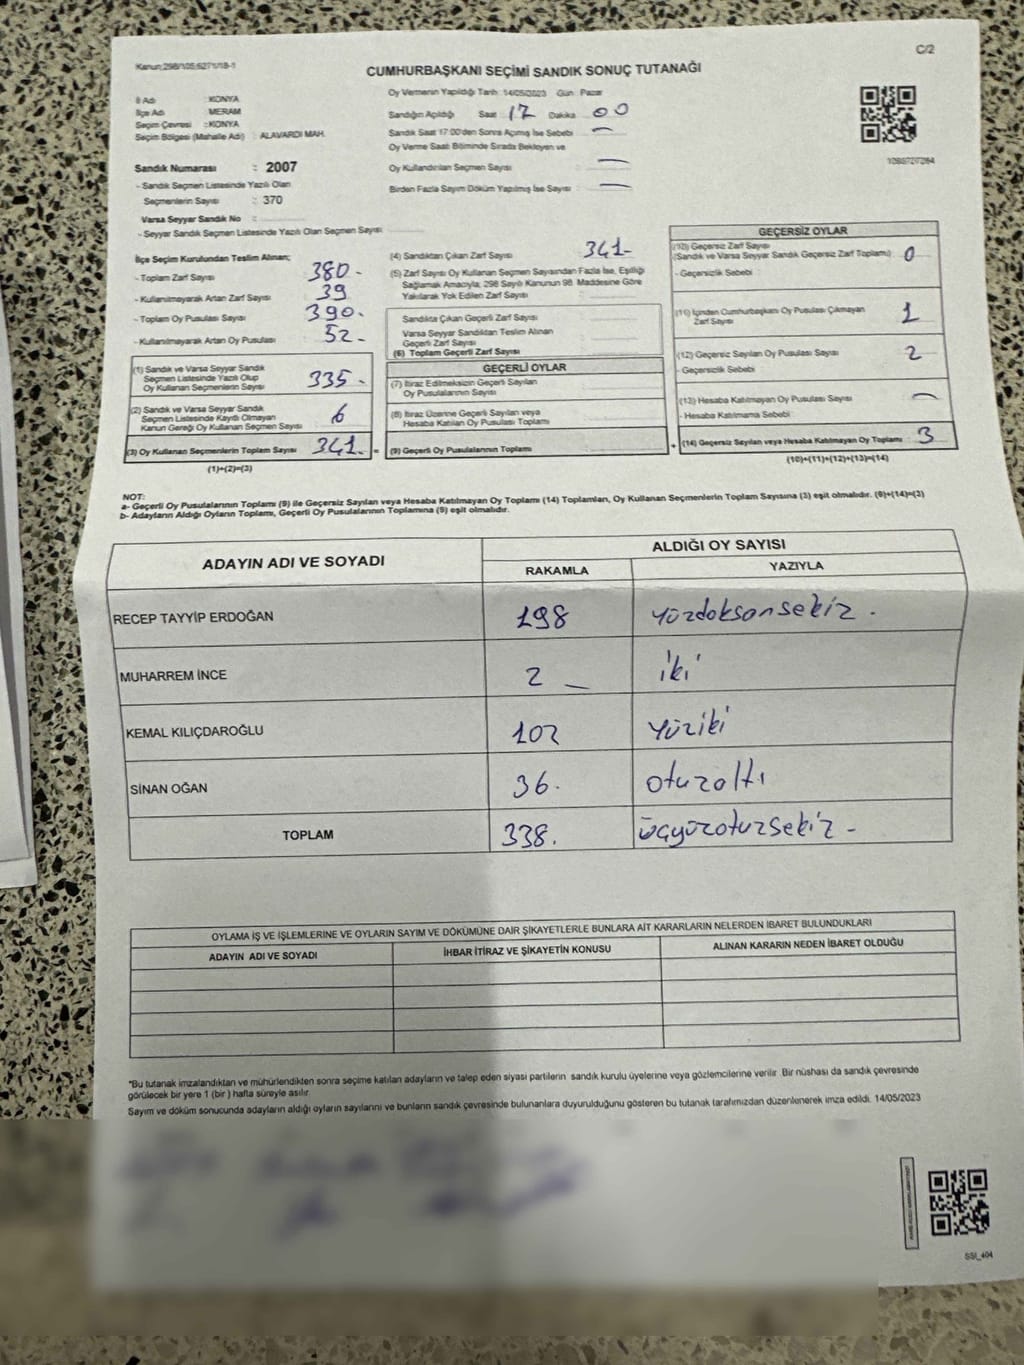 Kanun:298/105,6271/18-1
C/2
CUMHURBAŞKANI SEÇİMİ SANDIK SONUÇ TUTANAĞI
İl Adı : KONYA
İlçe Adı : MERAM
Seçim Çevresi : KONYA
Seçim Bölgesi (Mahalle Adı) : ALAVARDI MAH.
Sandık Numarası : 2007
- Sandık Seçmen Listesinde Yazılı Olan
Seçmenlerin Sayısı : 370
Varsa Seyyar Sandık No :
- Seyyar Sandık Seçmen Listesinde Yazılı Olan Seçmen Sayısı
Oy Vermenin Yapıldığı Tarih : 14/05/2023 Gün : Pazar
Sandığın Açıldığı Saat : 17 Dakika 00
Sandık Saat 17:00'den Sonra Açılmış İse Sebebi : —
Oy Verme Saati Bitiminde Sırada Bekleyen ve
Oy Kullandırılan Seçmen Sayısı : —
Birden Fazla Sayım Döküm Yapılmış İse Sayısı : —
İlçe Seçim Kurulundan Teslim Alınan;
- Toplam Zarf Sayısı : 380-
- Kullanılmayarak Artan Zarf Sayısı : 39
- Toplam Oy Pusulası Sayısı : 390.
- Kullanılmayarak Artan Oy Pusulası : 52-
(1) Sandık ve Varsa Seyyar Sandık
Seçmen Listesinde Yazılı Olup
Oy Kullanan Seçmenlerin Sayısı : 335-
(2) Sandık ve Varsa Seyyar Sandık
Seçmen Listesinde Kayıtlı Olmayan
Kanun Gereği Oy Kullanan Seçmen Sayısı : 6
(3) Oy Kullanan Seçmenlerin Toplam Sayısı : 341. =
(1)+(2)=(3)
(4) Sandıktan Çıkan Zarf Sayısı : 341-
(5) Zarf Sayısı Oy Kullanan Seçmen Sayısından Fazla İse, Eşitliği
Sağlamak Amacıyla; 298 Sayılı Kanunun 98. Maddesine Göre
Yakılarak Yok Edilen Zarf Sayısı :
Sandıkta Çıkan Geçerli Zarf Sayısı :
Varsa Seyyar Sandıktan Teslim Alınan
Geçerli Zarf Sayısı :
(6) Toplam Geçerli Zarf Sayısı :
GEÇERLİ OYLAR
(7) İtiraz Edilmeksizin Geçerli Sayılan
Oy Pusulalarının Sayısı :
(8) İtiraz Üzerine Geçerli Sayılan veya
Hesaba Katılan Oy Pusulaları Toplamı :
(9) Geçerli Oy Pusulalarının Toplamı : +
GEÇERSİZ OYLAR
(10) Geçersiz Zarf Sayısı
(Sandık ve Varsa Seyyar Sandık Geçersiz Zarf Toplamı) : 0
- Geçersizlik Sebebi :
(11) İçinden Cumhurbaşkanı Oy Pusulası Çıkmayan
Zarf Sayısı : 1
(12) Geçersiz Sayılan Oy Pusulası Sayısı : 2
- Geçersizlik Sebebi :
(13) Hesaba Katılmayan Oy Pusulası Sayısı : —
- Hesaba Katılmama Sebebi :
(14) Geçersiz Sayılan veya Hesaba Katılmayan Oy Toplamı : 3
(10)+(11)+(12)+(13)=(14)
NOT:
a- Geçerli Oy Pusulalarının Toplamı (9) ile Geçersiz Sayılan veya Hesaba Katılmayan Oy Toplamı (14) Toplamları, Oy Kullanan Seçmenlerin Toplam Sayısına (3) eşit olmalıdır. (9)+(14)=(3)
b- Adayların Aldığı Oyların Toplamı, Geçerli Oy Pusulalarının Toplamına (9) eşit olmalıdır.
ADAYIN ADI VE SOYADI ALDIĞI OY SAYISI
RAKAMLA YAZIYLA
RECEP TAYYİP ERDOĞAN 198 yüzdoksansekiz.
MUHARREM İNCE 2 — iki
KEMAL KILIÇDAROĞLU 102 yüziki
SİNAN OĞAN 36. otuzaltı
TOPLAM 338. üçyüzotuzsekiz-
OYLAMA İŞ VE İŞLEMLERİNE VE OYLARIN SAYIM VE DÖKÜMÜNE DAİR ŞİKAYETLERLE BUNLARA AİT KARARLARIN NELERDEN İBARET BULUNDUKLARI
ADAYIN ADI VE SOYADI İHBAR İTİRAZ VE ŞİKAYETİN KONUSU ALINAN KARARIN NEDEN İBARET OLDUĞU
*Bu tutanak imzalandıktan ve mühürlendikten sonra seçime katılan adayların ve talep eden siyasi partilerin sandık kurulu üyelerine veya gözlemcilerine verilir. Bir nüshası da sandık çevresinde
görülecek bir yere 1 (bir ) hafta süreyle asılır.
Sayım ve döküm sonucunda adayların aldığı oyların sayılarını ve bunların sandık çevresinde bulunanlara duyurulduğunu gösteren bu tutanak tarafımızdan düzenlenerek imza edildi. 14/05/2023
SSI_404